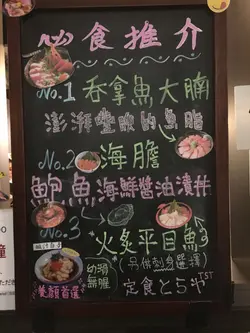 必食推介
No.1 吞拿魚大腩
澎湃豐腴的魚脂
No.2 海膽
鮑魚 海鮮醬油漬丼
No.3 火炙平目魚
(另供刺身選擇)
幼滑無腥
養顏首選
定食とらや TST